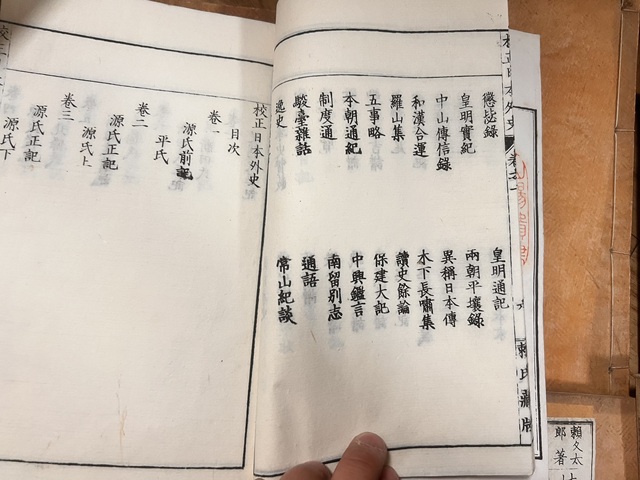 校正日本外史 卷之一 賴氏藏版
懲毖錄 皇明通記
皇明實紀 兩朝平壤錄
中山傳信錄 異稱日本傳
和漢合運 木下長嘯集
羅山集 讀史餘論
五事略 保建大記
本朝通紀 中興鑑言
制度通 南留別志
駿臺雜話 通語
逸史 常山紀談
校正日本外史
目次
卷一
源氏前記
平氏
卷二
源氏正記
源氏上
卷三
源氏正記
源氏下
賴久太
郎著